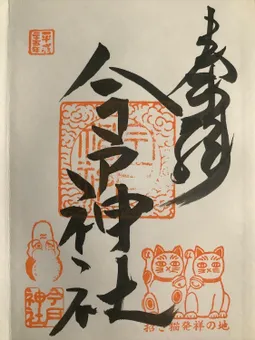 奉拝
今戸神社
今戸神社
招き猫発祥の地